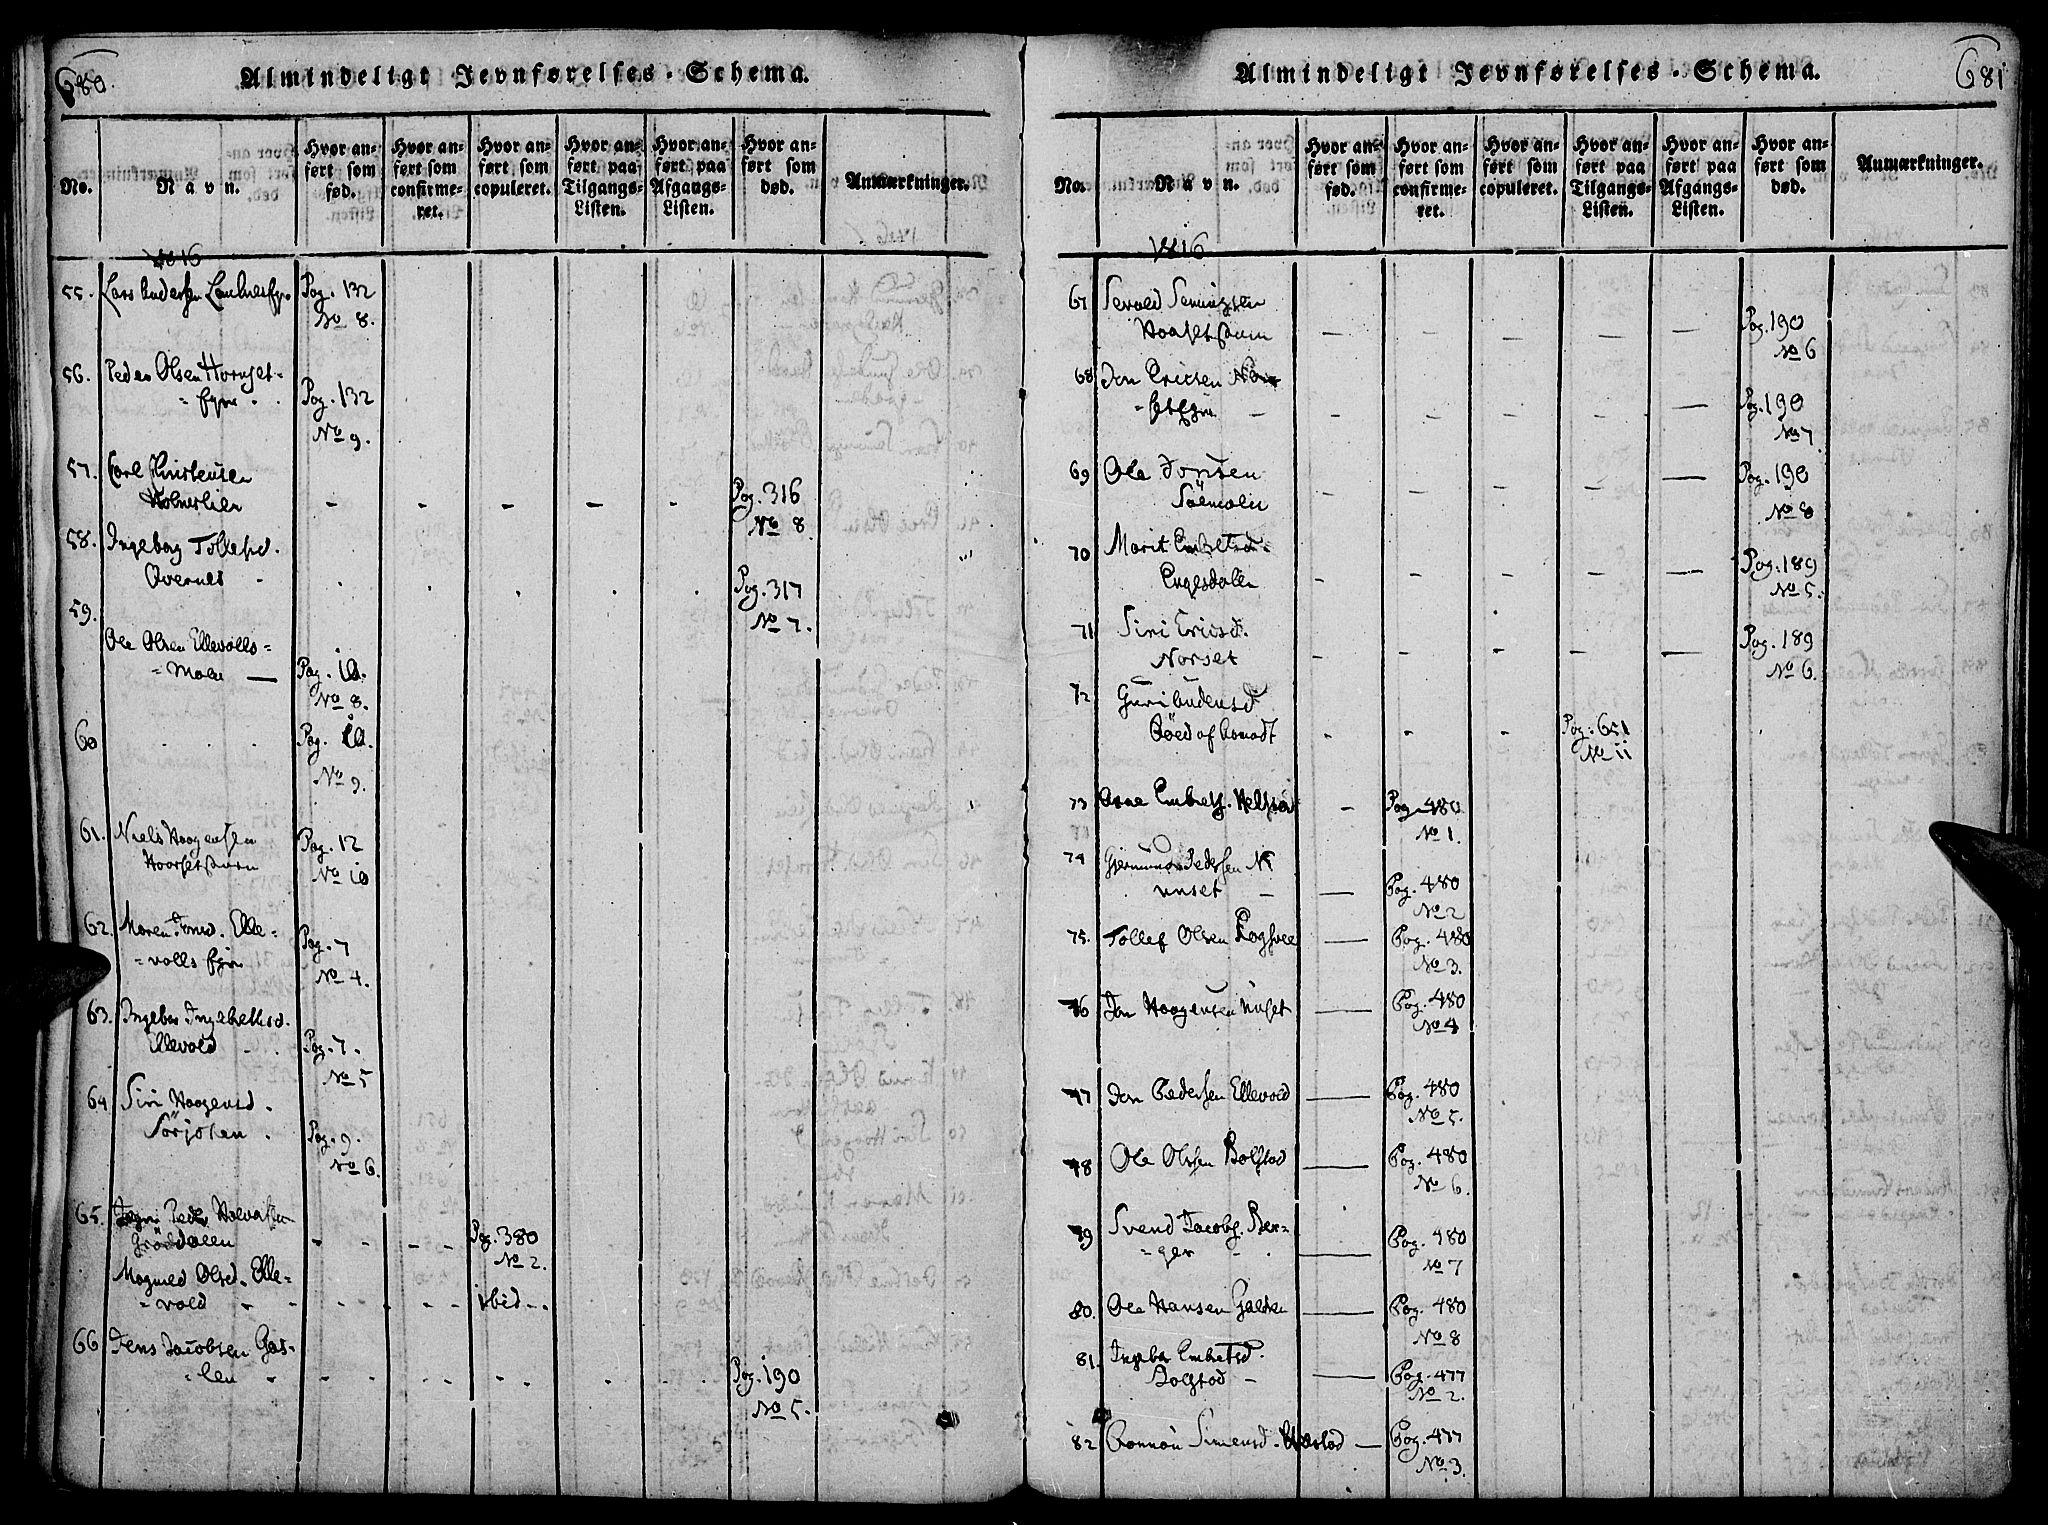 680.
Almindeligt Jevnførelses-Schema.
No.
Navn.
Hvor an-
ført som
fød.
Hvor an-
ført som
confirme-
ret.
Hvor an-
ført som
copuleret.
Hvor an-
ført paa
Tilgangs-
Listen.
Hvor an-
ført paa
Afgangs-
Listen.
Hvor an-
ført som
død.
Anmærkninger.
1816
55. Lars Andersen Pag. 132
No 8.
56. Peder Olsen Hornset-
- Eyer Pag. 132
No 9.
57. Carl Christensen
Holmerlien - - - - - Pag. 316
No 8
58. Ingeborg Tollefsd.
Overnes Pag. 317
No 7.
59.
Ole Olsen Ellevolls-
- Moen — Pag. 12.
No 8.
60 Pag. 12.
No 9.
61. Niels Haagensen Pag. 12
No 10
62. Maren Jonsd. Elle-
- volls Eyer Pag. 7
No 4.
63. Ingebor Ingebrethsd.
Ellevold Pag. 7.
No 5
64 Siri Haagensd.
Sörjoten. Pag. 9.
No 6.
65. Peders
Grötdalen - - - Pag. 380
No 2.
Magnild Olsd. Elle-
- vold - - - ibid.
66 Jens Jacobsen Gas-
- len Pag. 190
No 5.
681
Almindeligt Jevnførelses-Schema.
No.
Navn.
Hvor an-
ført som
fød.
Hvor an-
ført som
confirme-
ret.
Hvor an-
ført som
copuleret.
Hvor an-
ført paa
Tilgangs-
Listen.
Hvor an-
ført paa
Afgangs-
Listen.
Hvor an-
ført som
død.
Anmærkninger.
1816
67 Semingsen
- - - - - Pag. 190
No 6
68 Jon Ericsen
Pag. 190
No 7
69 Ole Jonsen
Sölmoen - - - - — Pag. 190
No 8
70 Marit Embretsd.
Engesdalen - - - - — Pag. 189
No 5.
71 Siri Ericsd.
Norset - - - - — Pag. 189
No 6.
72 Guri Amundsd.
- - - Pag. 651
No 11
73 Arne Embrets. - Pag. 480
No 1.
74 Gjermund Pedersen
unset — Pag. 480
No 2
75. Tollef Olsen — Pag. 480
No 3.
76 Jon Haagensen Unset — Pag. 480
No 4
77 Jon Pedersen Ellevold — Pag. 480
No 5.
78 Ole Olsen Bolstad — Pag. 480
No 6.
79 Svend Jacobs. Ber-
- ger — Pag. 480
No 7
80. Ole Hansen Galten — Pag. 480
No 8
81. Ingebor Embretsd.
Bolstad — Pag. 477
No 2.
82 Simensd. — Pag. 477
No 3.